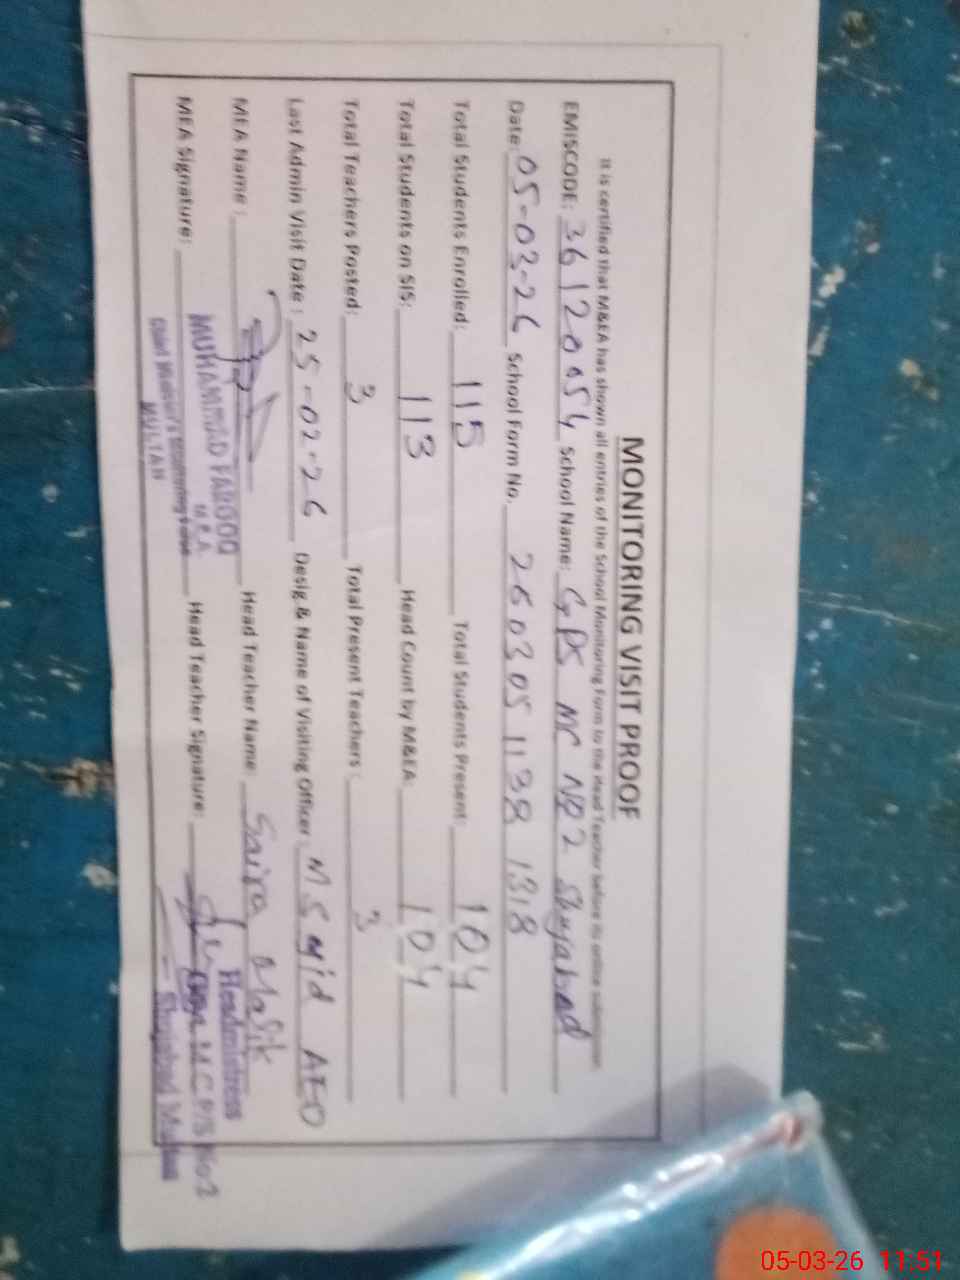 MONITORING VISIT PROOF
It is certified that M&EA has shown all entries of the School Monitoring Form to the Head Teacher before its online submission.
EMISCODE: 36120054 School Name: GPS MC NO2 Shujabad
Date: 05-03-26 School Form No. 2603051138 1318
Total Students Enrolled: 115 Total Students Present: 104
Total Students on SIS: 113 Head Count by M&EA: 104
Total Teachers Posted: 3 Total Present Teachers: 3
Last Admin Visit Date: 25-02-26 Desig & Name of Visiting Officer: M Sajid AEO
MEA Name: Head Teacher Name: Saira Malik
MEA Signature: Head Teacher Signature:
MUHAMMAD FAROOQ
M.E.A
Chief Minister's Monitoring Force
MULTAN
Headmistress
M.C P/S No.2
Shujabad Multan
05-03-26 11:51